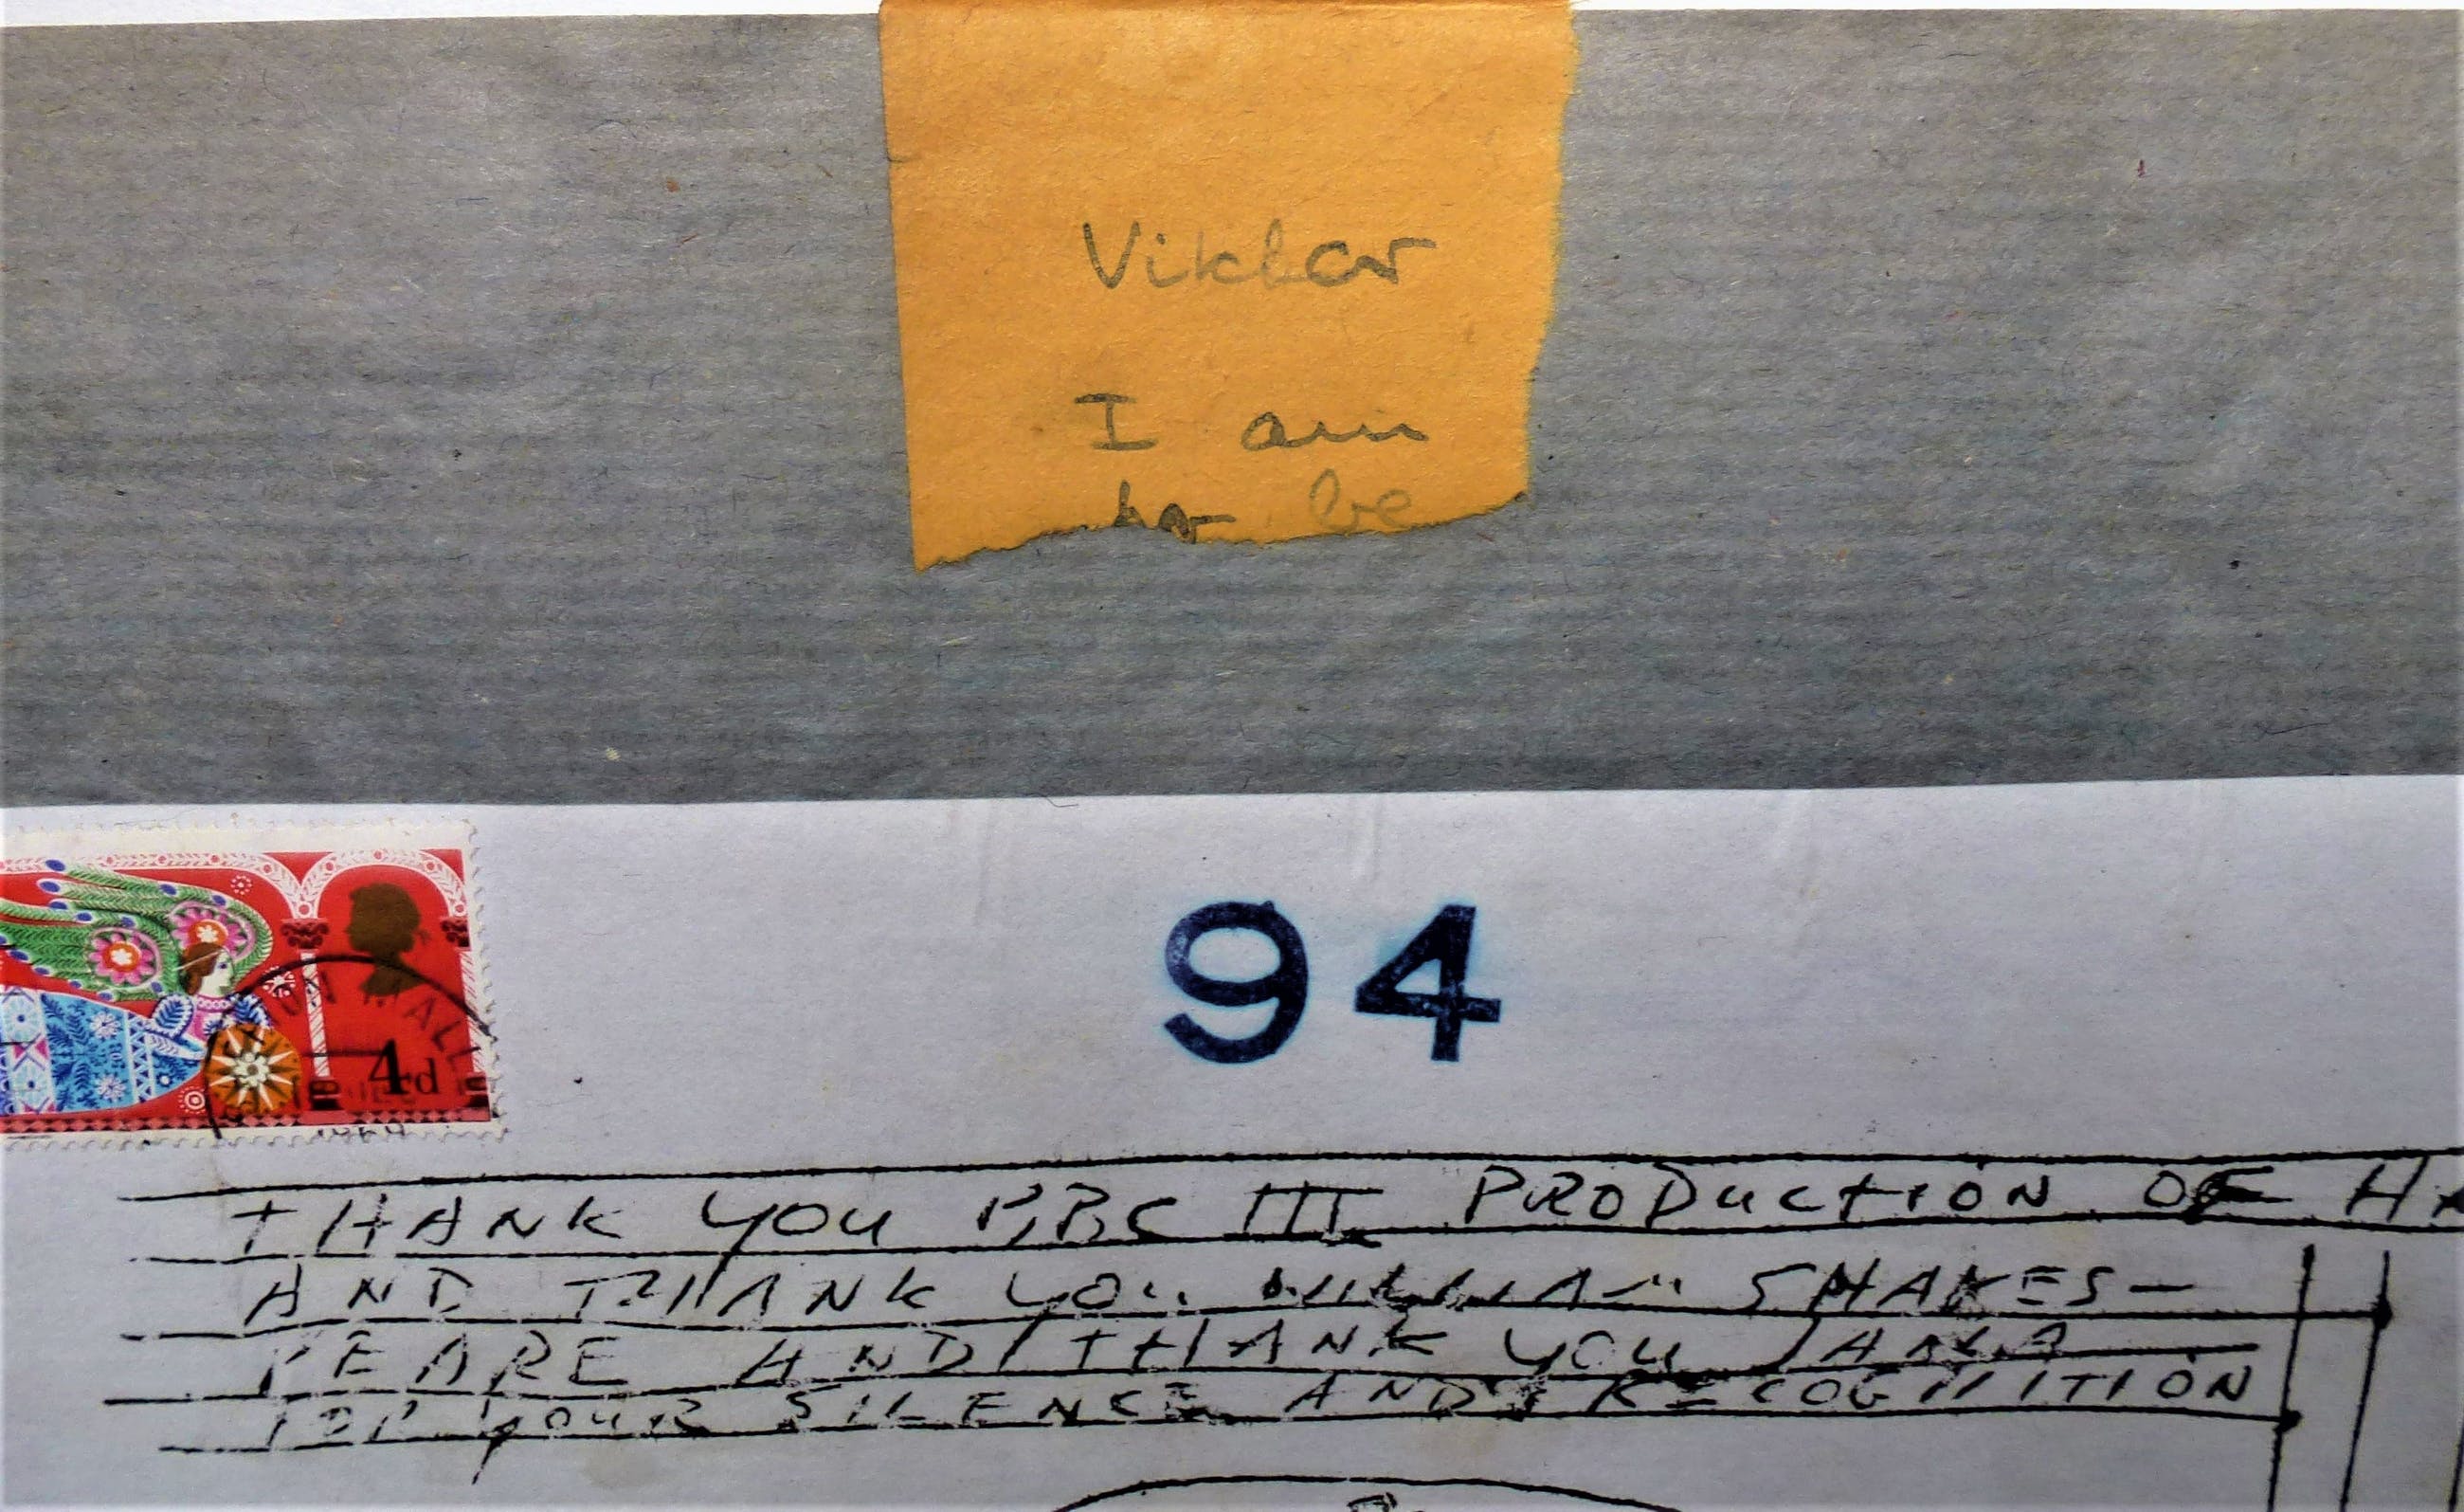 Viktor
I am
to be
94
4d
THANK YOU BBC III PRODUCTION OF HA
AND THANK YOU WILLIAM SHAKES-
PEARE AND THANK YOU
FOR YOUR SILENCE AND RECOGNITION